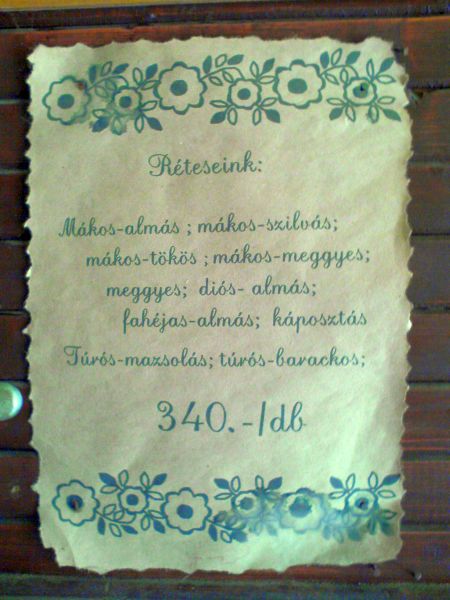 Réteseink:
Mákos-almás ; mákos-szilvás;
mákos-tökös ; mákos-meggyes;
meggyes; diós- almás;
fahéjas-almás; káposztás
Túrós-mazsolás; túrós-barackos;
340.-/db